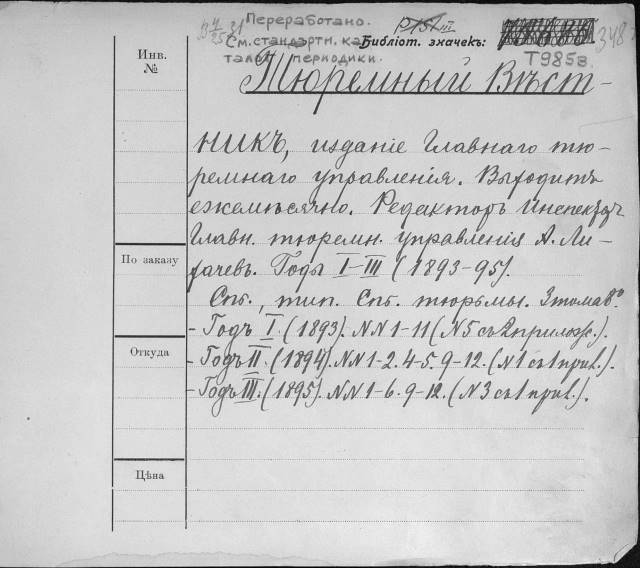 Переработано.
См. стандартн. ка-
талог периодики.
Библіот. значекъ:
Т985в.
Инв.
№
Тюремный Вѣст-
никъ, изданіе Главнаго тю-
ремнаго управленія. Выходитъ
ежемѣсячно. Редакторъ Инспекторъ
Главн. тюремн. управленія А. Ли-
хачевъ. Годы I-III (1893-95).
Спб., тип. Спб. тюрьмы. 3 тома в 8º
По заказу
- Годъ I. (1893). NN 1-11 (N 5 съ 2 прилож.).
Откуда
- Годъ II. (1894). NN 1-2. 4-5. 9-12. (N 1 съ 1 прил.).
- Годъ III. (1895). NN 1-6. 9-12. (N 3 съ 1 прил.).
Цѣна